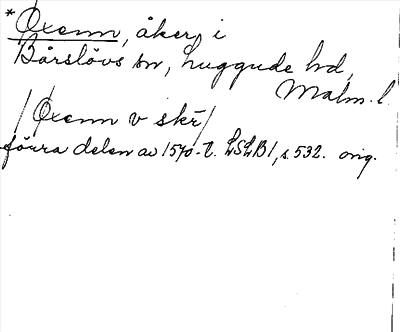 * Oxenn, åker, i
Bårslövs sn, Luggude hd,
Malm. l.
/Oxenn v skr/
förra delen av 1570-t. LSLB1, s. 532. orig.